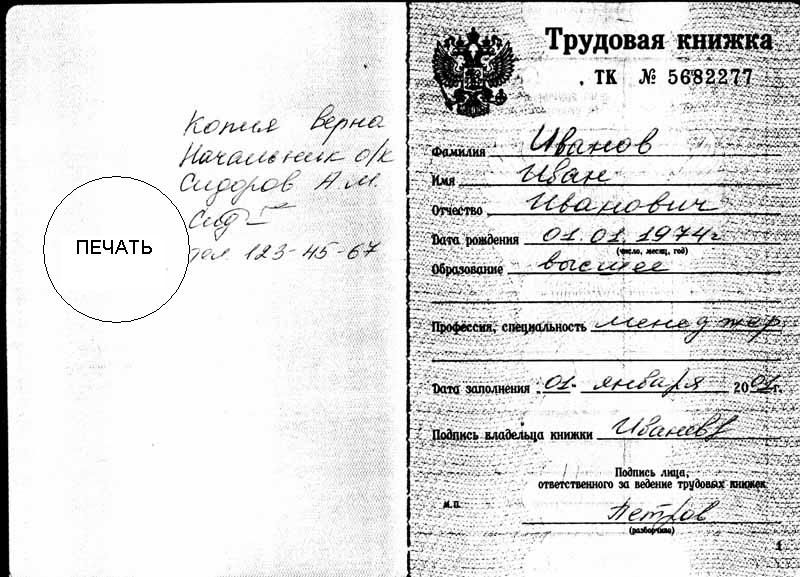 Копия верна
Начальник о/к
Сидоров А.М.
Сид
тел. 123-45-67
ПЕЧАТЬ
Трудовая книжка
ТК № 5682277
Фамилия Иванов
Имя Иван
Отчество Иванович
Дата рождения 01.01.1974г
(число, месяц, год)
Образование высшее
Профессия, специальность менеджер
Дата заполнения 01. января 2001г.
Подпись владельца книжки Иванов
Подпись лица,
ответственного за ведение трудовых книжек
М.П.
Петров
(разборчиво)
1